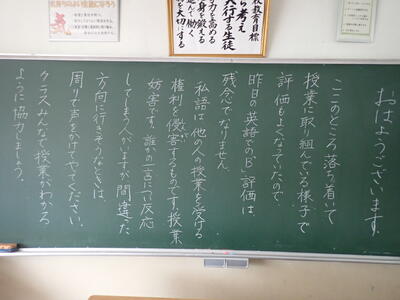 おはようございます。
ここのところ落ち着いて
授業に取り組んでいる様子で
評価もよくなってたので
昨日の英語での「B」評価は、
残念でなりません。
私語は他の人の授業を受ける
権利を侵害するものです。授業
妨害です。誰かの一言につい反応
してしまう人がいますが間違った
方向に行きそうなときは、
周りで声をかけてやってください。
クラスみんなで授業がわかる
ように協力しましょう。
校教育目標
ら考え
実行する生徒
力を高める
身を鍛える
進んで働く
を大切にする